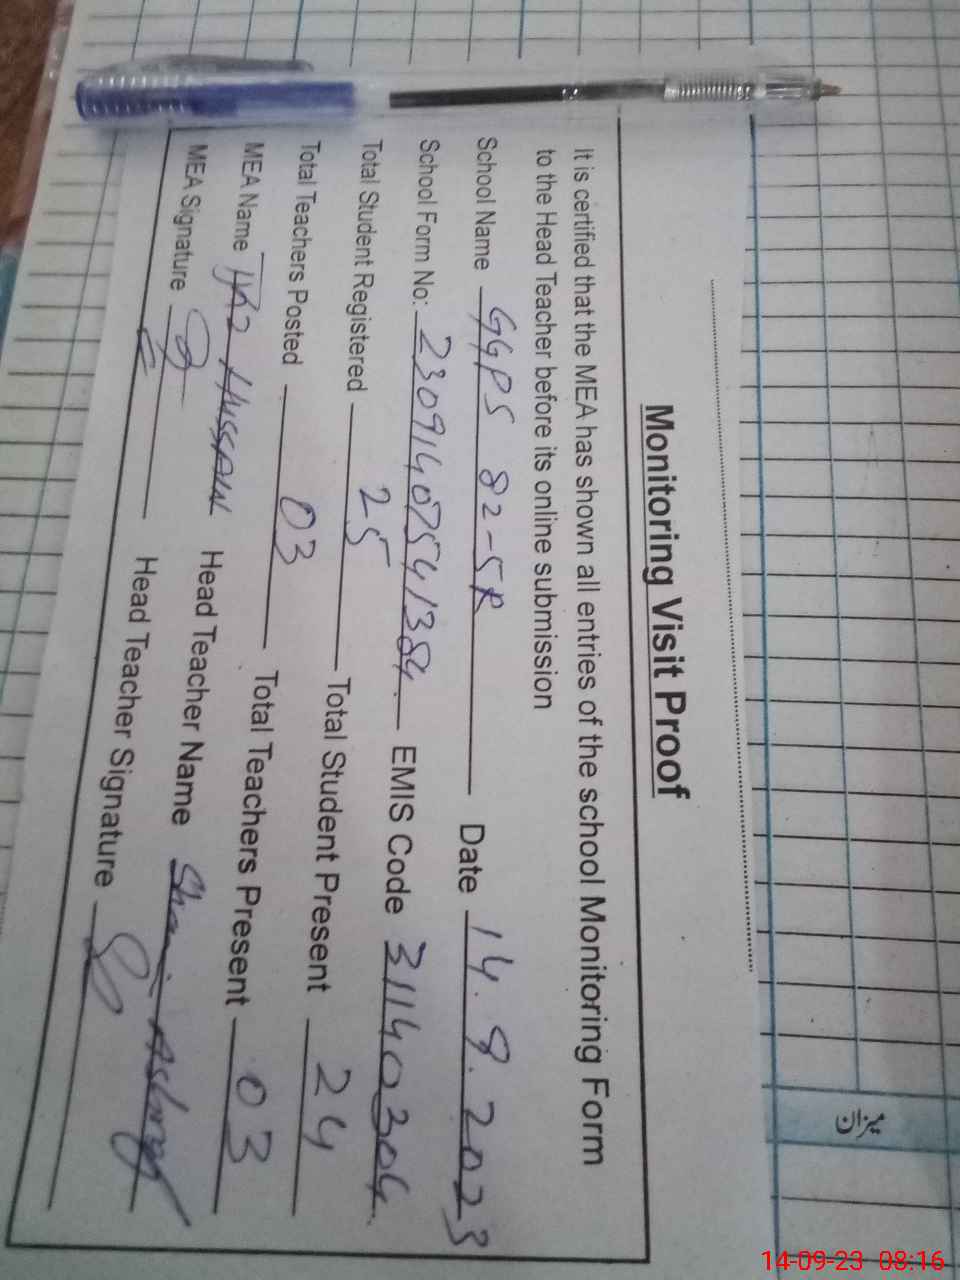 Monitoring Visit Proof
It is certified that the MEA has shown all entries of the school Monitoring Form
to the Head Teacher before its online submission
School Name GGPS 82-5R Date 14.9.2023
School Form No: 23091407541384. EMIS Code 31140304
Total Student Registered 25 Total Student Present 24
Total Teachers Posted 03 Total Teachers Present 03
MEA Name Hussain Head Teacher Name Ashraf
MEA Signature Head Teacher Signature
14-09-23 08:16